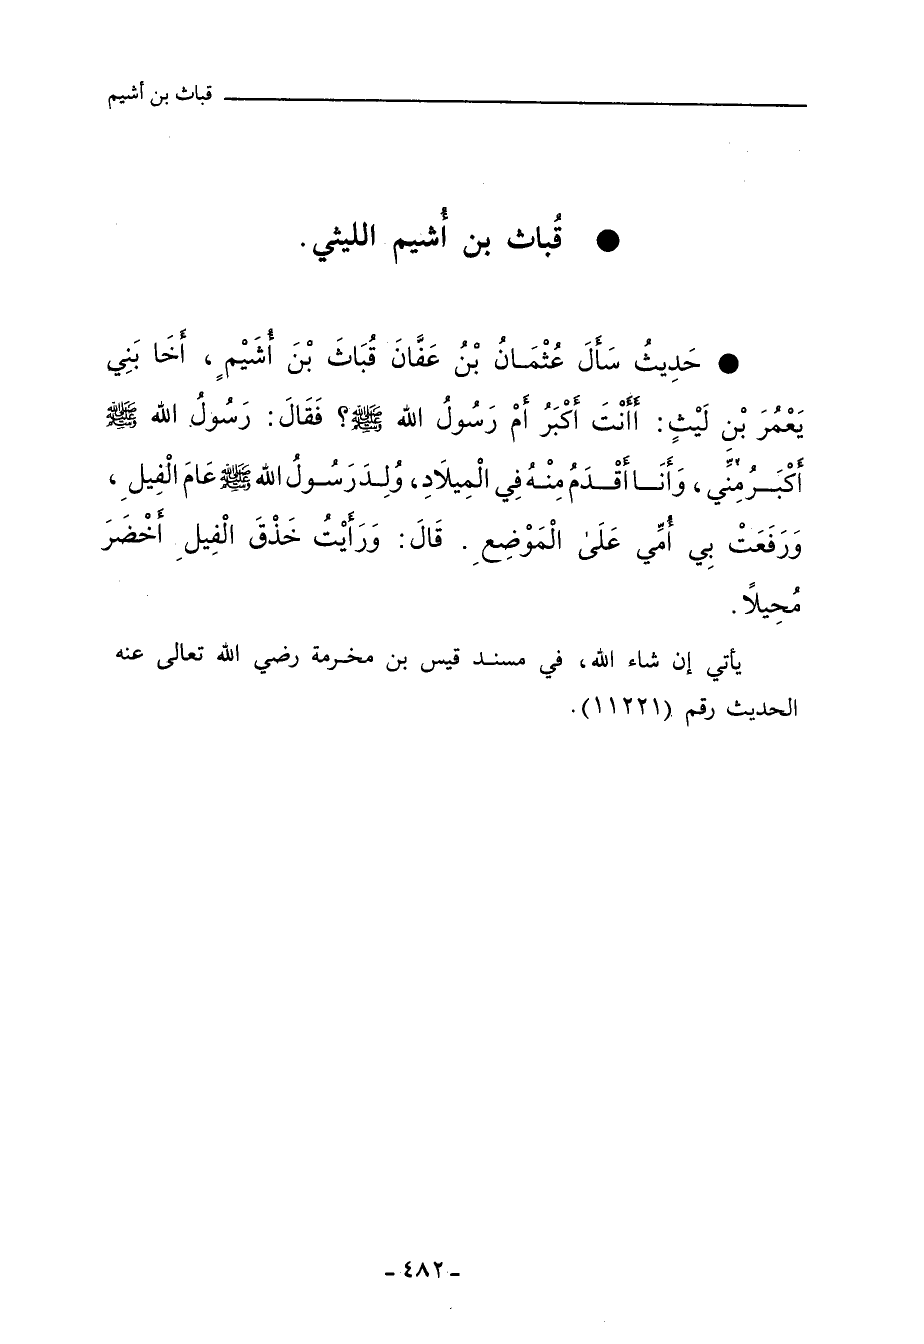 قباث بن أشيم
● قُباث بن أُشيم الليثي.
● حَدِيثُ سَأَلَ عُثْمَانُ بْنُ عَفَّانَ قُبَاثَ بْنَ أُشَيْمٍ، أَخَا بَنِي
يَعْمُرَ بْنِ لَيْثٍ: أَأَنْتَ أَكْبَرُ أَمْ رَسُولُ الله ﷺ؟ فَقَالَ: رَسُولُ الله ﷺ
أَكْبَرُ مِنِّي، وَأَنَا أَقْدَمُ مِنْهُ فِي الْمِيلَادِ، وُلِدَ رَسُولُ الله ﷺ عَامَ الْفِيلِ،
وَرَفَعَتْ بِي أُمِّي عَلَىٰ الْمَوْضِعِ. قَالَ: وَرَأَيْتُ خَذْقَ الْفِيلِ أَخْضَرَ
مُحِيلاً.
يأتي إن شاء الله، في مسند قيس بن مخرمة رضي الله تعالى عنه
الحديث رقم (١١٢٢١).
- ٤٨٢ -